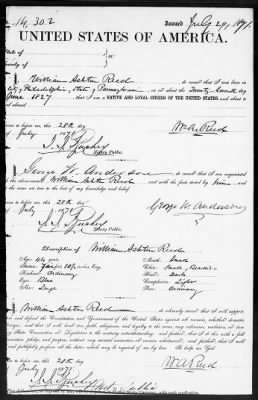 14,302 Issued July 29, 1871.
UNITED STATES OF AMERICA.
State of
County of
I, William Ashton Reed, do swear that I was born in
City Philadelphia, State Pennsylvania, on or about the Twenty day
June 1827, that I am a NATIVE AND LOYAL CITIZEN OF THE UNITED STATES, and about
abroad
to before me, this 28th day
July 1871
Notary Public.
Wm A. Reed
George W. Anderson, do swear that I am acquainted
William Ashton Reed, and with the facts stated by him, and
the same are true to the best of my knowledge and belief.
to before me, this 28th day
July 1871
Notary Public.
George W. Anderson
Description of William Ashton Reed
Age: 44 years
Mouth: Small
Stature: Five feet 10½ inches, Eng.
Chin: Small, Beard
Forehead: Ordinary
Hair: Dark
Eyes: Blue
Complexion: Light
Nose: Large
Face: Ordinary
I, William Ashton Reed, do solemnly swear that I will support,
and defend the Constitution and Government of the United States against all enemies, whether domestic
foreign; and that I will bear true faith, allegiance, and loyalty to the same, any ordinance, resolution, or law
any State, Convention, or Legislature to the contrary notwithstanding; and further, that I do this with a
full determination, pledge, and purpose, without any mental reservation or evasion whatsoever; and further, that I will
and faithfully perform all the duties which may be required of me by law. So help me God.
Sworn to before me, this 28th day
July 1871
W A Reed
Notary Public